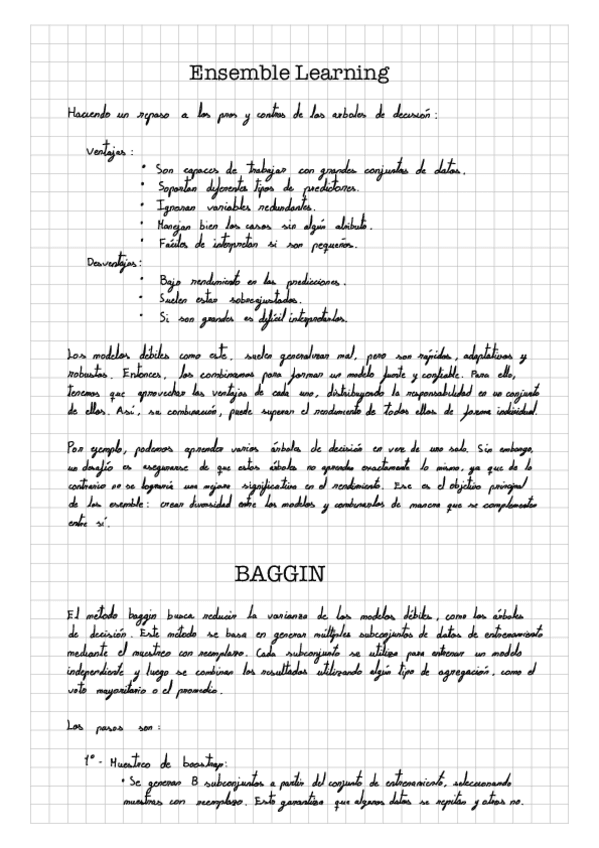 Ensemble Learning
Haciendo un repaso a los pros y contras de los arboles de decisión:
Ventajas:
· Son capaces de trabajar con grandes conjuntos de datos.
· Soportan diferentes tipos de predictores.
· Ignoran variables redundantes.
· Manejan bien los casos sin algún atributo.
· Fáciles de interpretar si son pequeños.
Desventajas:
· Bajo rendimiento en las predicciones.
· Suelen estar sobreajustados.
· Si son grandes es difícil interpretarlos.
Los modelos débiles como este, suelen generalizar mal, pero son rápidos, adaptativos y
robustos. Entonces, los combinamos para formar un modelo fuerte y confiable. Para ello,
tenemos que aprovechar las ventajas de cada uno, distribuyendo la responsabilidad en un conjunto
de ellos. Así, su combinación, puede superar el rendimiento de todos ellos de forma individual.
Por ejemplo, podemos aprender varios árboles de decisión en vez de uno solo. Sin embargo,
un desafío es asegurarse de que estos árboles no aprendan exactamente lo mismo, ya que de lo
contrario no se lograría una mejora significativa en el rendimiento. Ese es el objetivo principal
de los esemble: crear diversidad entre los modelos y combinarlos de manera que se complementen
entre sí.
BAGGIN
El método baggin busca reducir la varianza de los modelos débiles, como los árboles
de decisión. Este método se basa en generar múltiples subconjuntos de datos de entrenamiento
mediante el muestreo con reemplazo. Cada subconjunto se utiliza para entrenar un modelo
independiente y luego se combinan los resultados utilizando algún tipo de agregación, como el
voto mayoritario o el promedio.
Los pasos son:
1º - Muestreo de boostrap:
· Se generan B subconjuntos a partir del conjunto de entrenamiento, seleccionando
muestras con reemplazo. Esto garantiza que algunos datos se repitan y otros no.